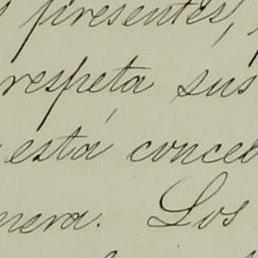 presentes,
respeta sus
esta conce
nera. Los